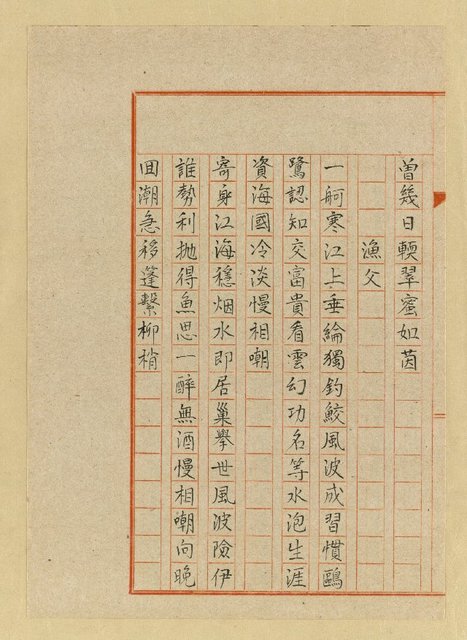 曾幾日輭翠蜜如茵
漁父
一舸寒江上垂綸獨釣鮫風波成習慣鷗
鷺認知交富貴看雲幻功名等水泡生涯
資海國冷淡慢相嘲
寄身江海穩烟水即居巢舉世風波險伊
誰勢利拋得魚思一醉無酒慢相嘲向晚
回潮急移蓬繫柳梢